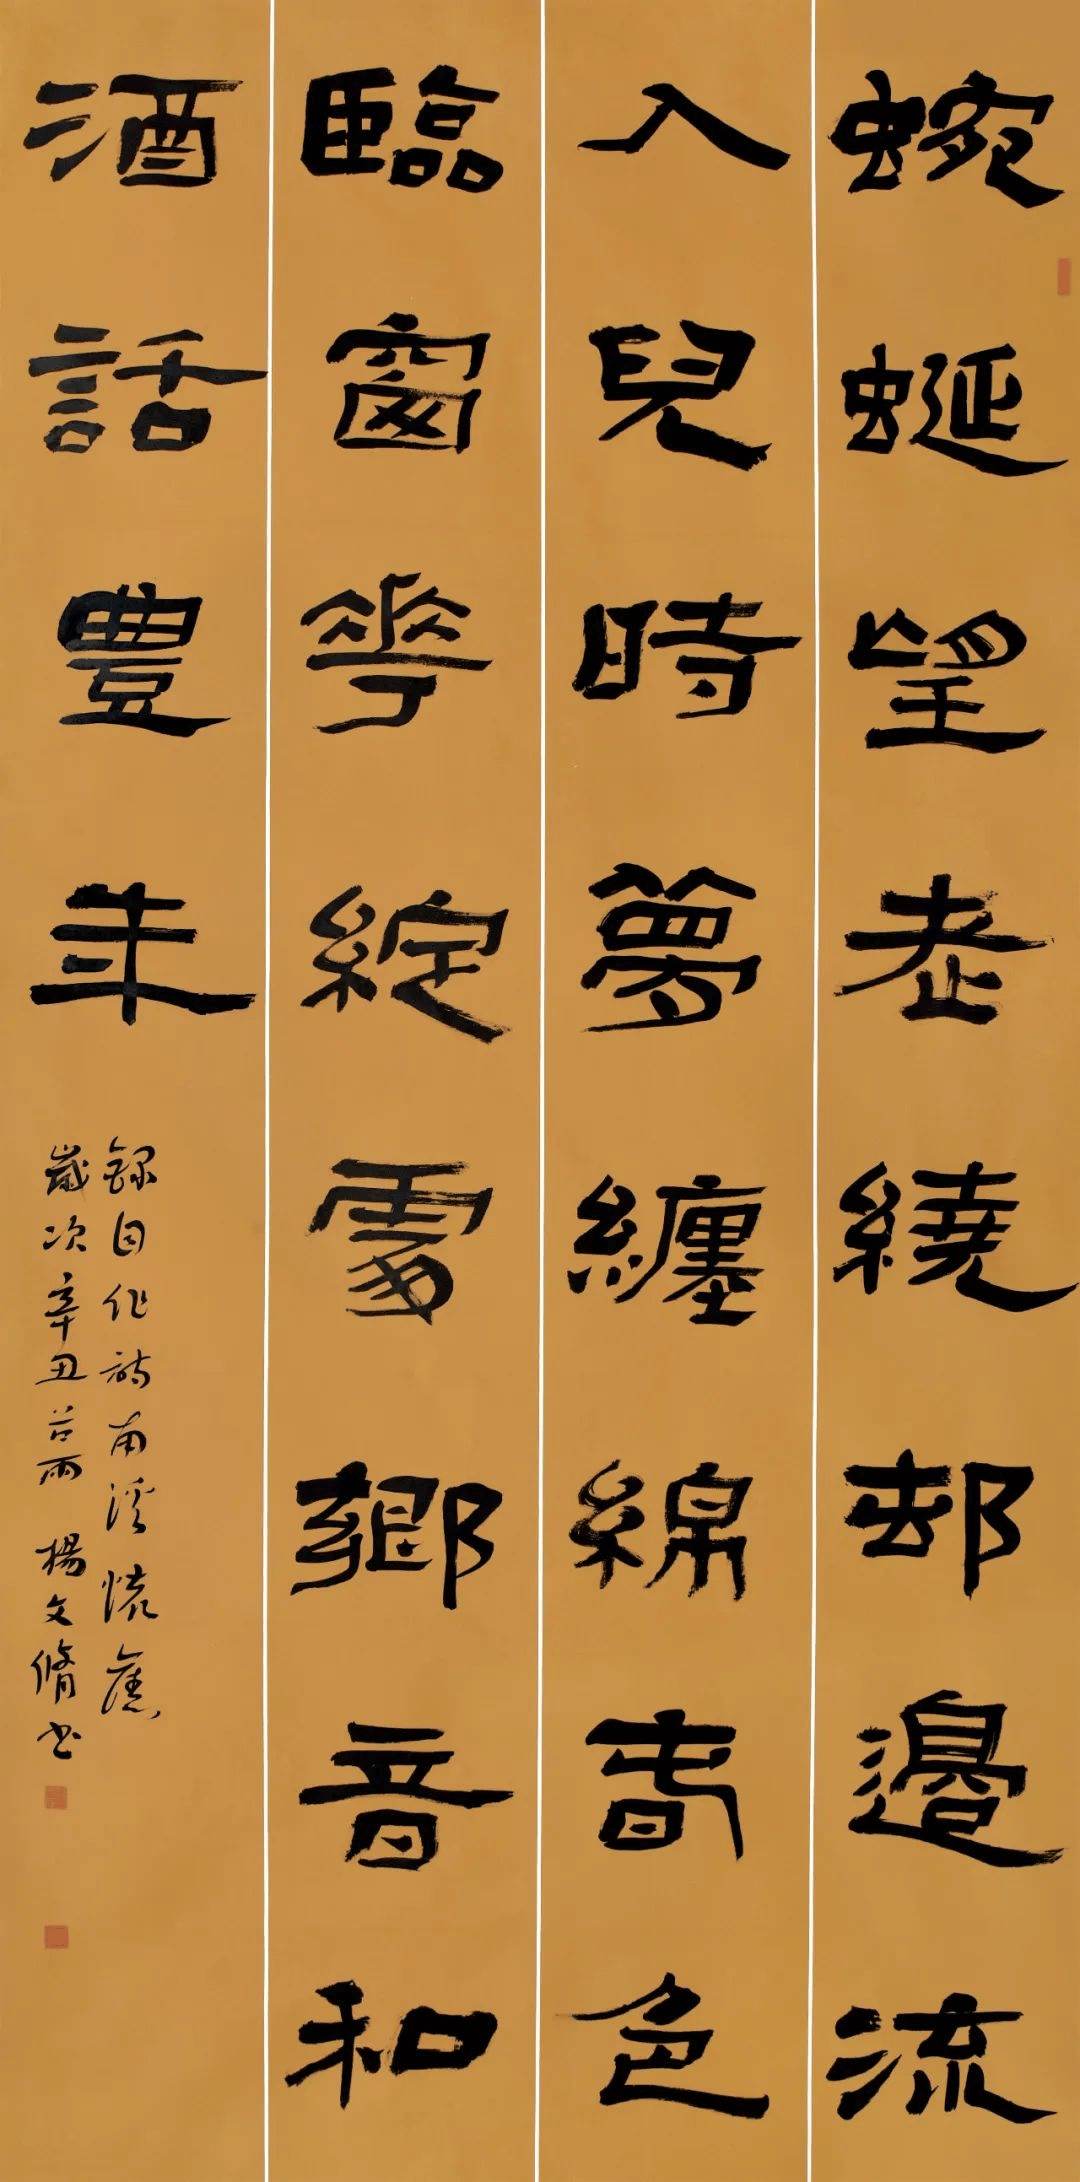 蜿蜒望老繞邨邊流
入兒時夢纏綿春色
臨窗華綻雪鄉音和
酒話豐年
錄自作詩南溪懷舊
歲次辛丑谷雨 楊文脩书